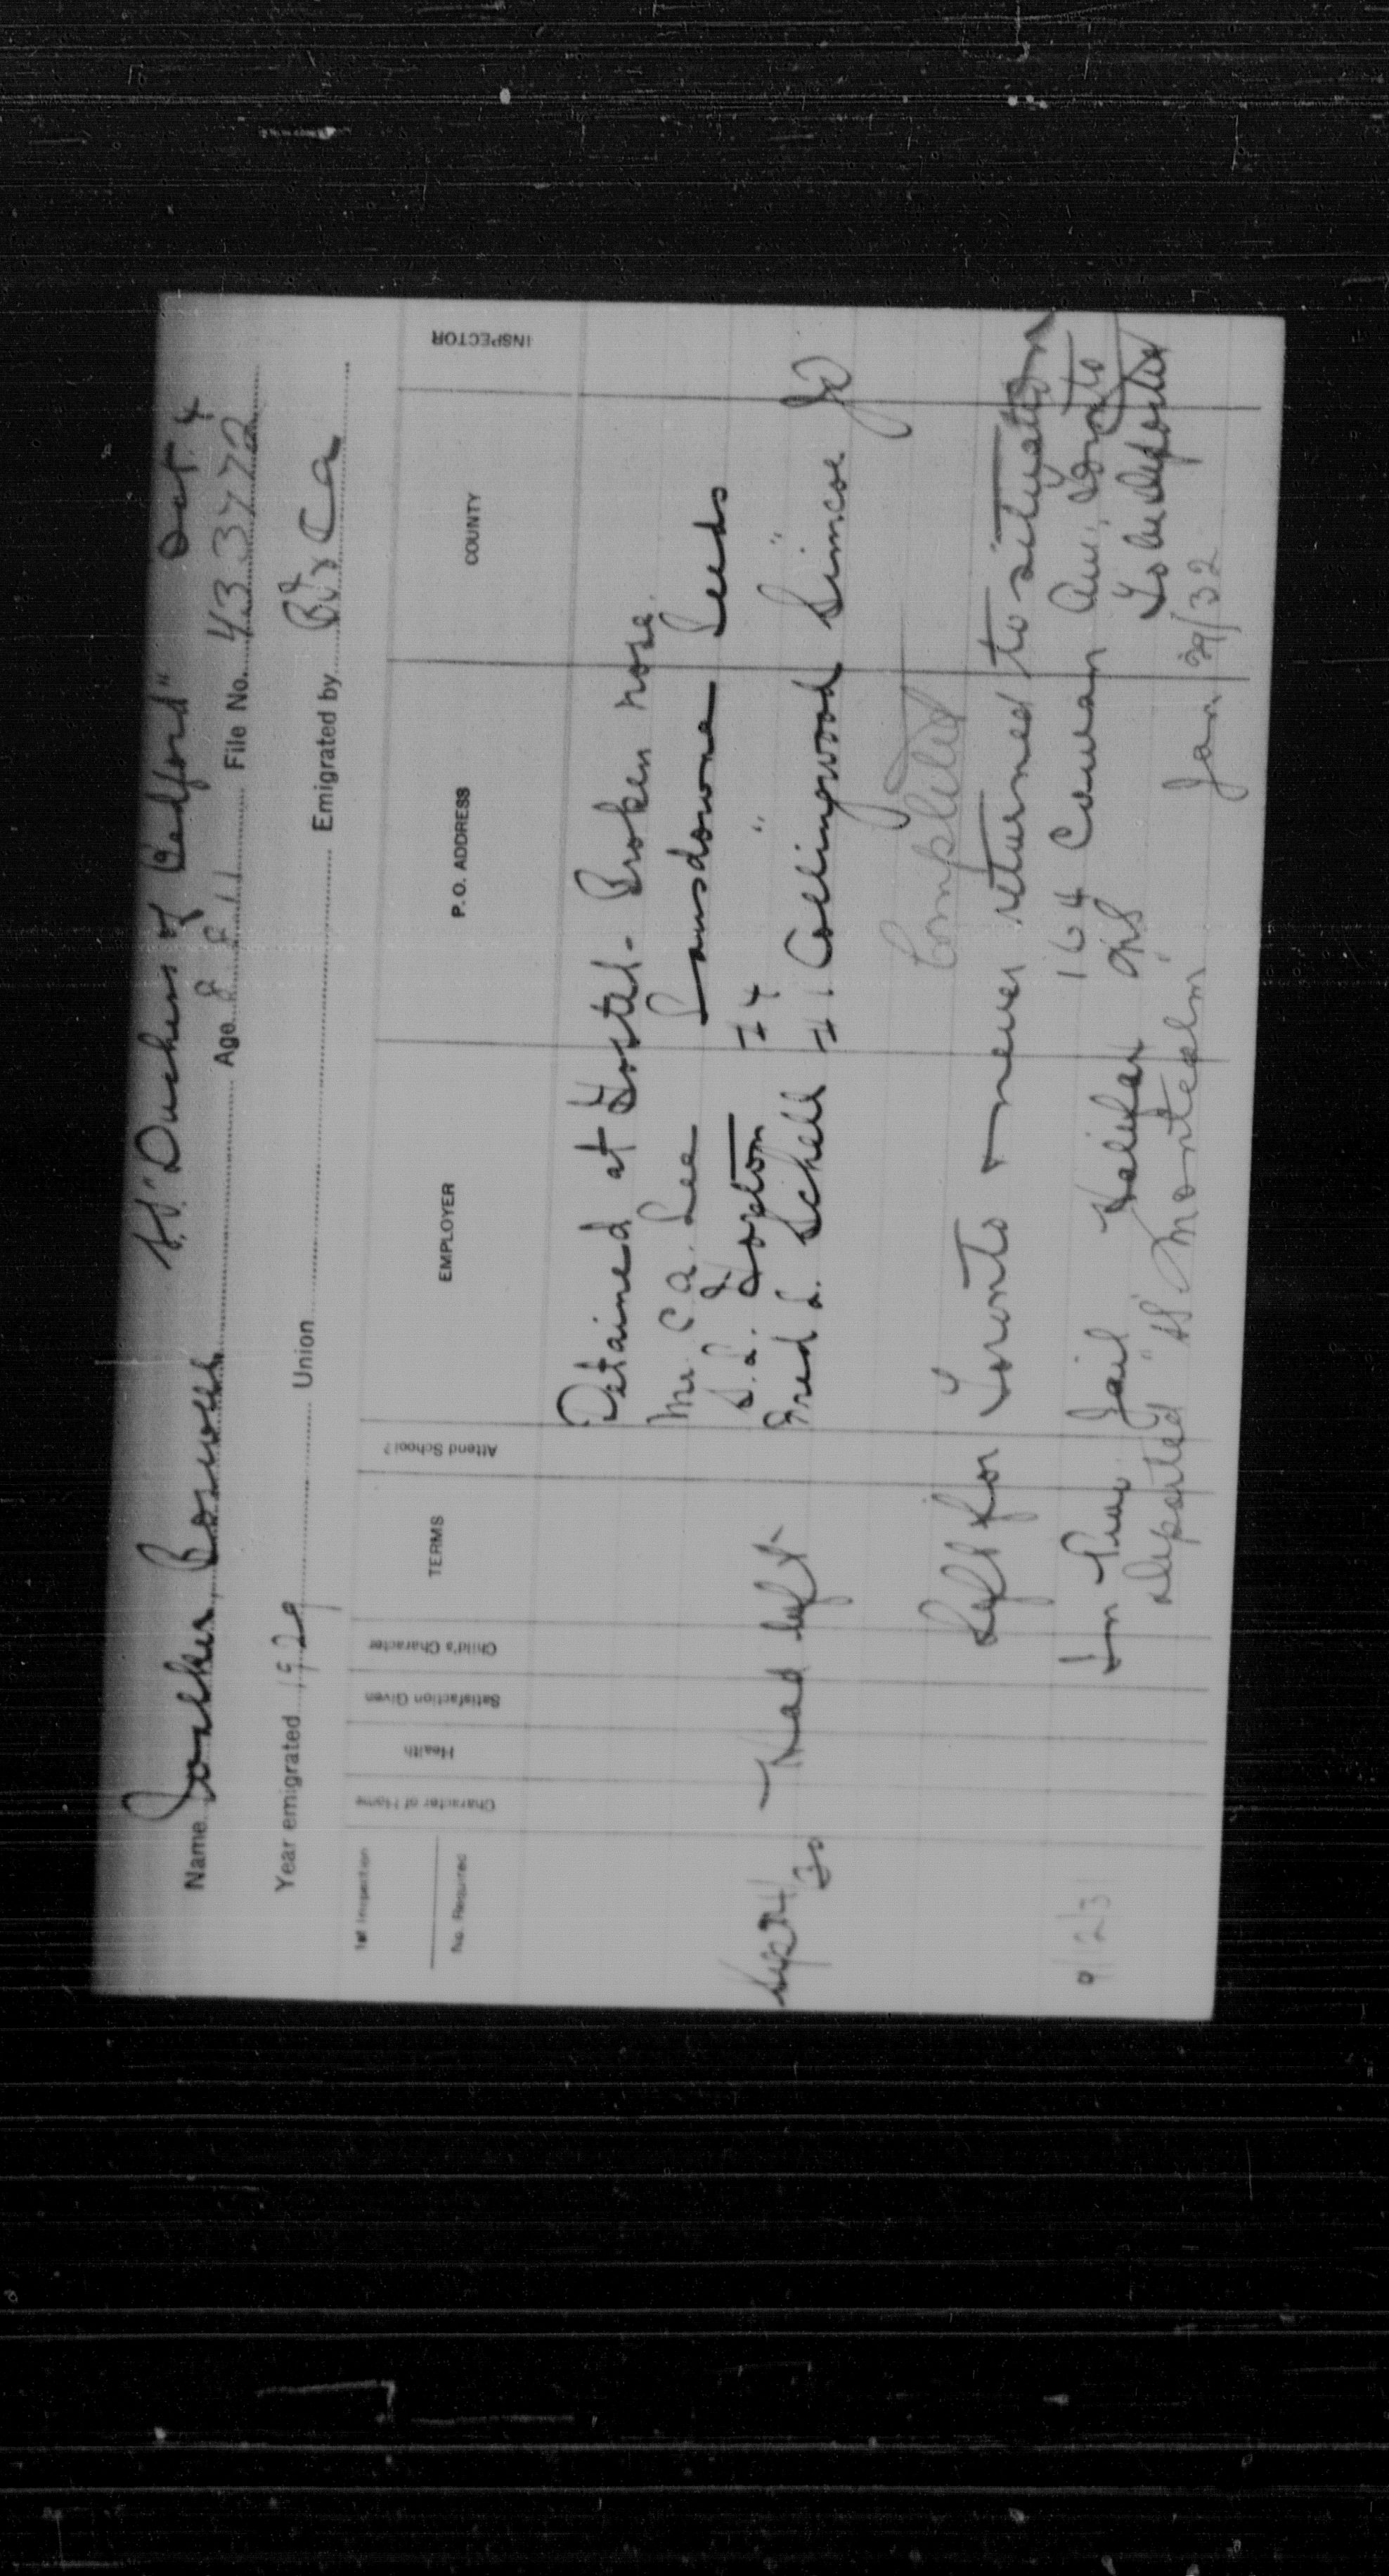 SS "Duchess of Bedford" Oct. 4
Name Walker, Bosworth Age 8.8.11 File No. 433772
Year emigrated 1929 Union Emigrated by Bd & Ca
1st Inspection
No. Required
Character of Home
Health
Satisfaction Given
Child's Character
TERMS
Attend School?
EMPLOYER
P.O. ADDRESS
COUNTY
INSPECTOR
Detained at Hostel - Broken nose.
Mr. C. A. Lee Lansdowne Leeds
S. L. Hopton #4 " "
Sept 4/30 Had left Fred L. Schell #1 Collingwood Simcoe
Completed
Left for Toronto & never returned to situation
164 Cowan Ave, Toronto
9/12/31 In Prov. Jail Halifax NS To be deported
deported "SS Montcalm Jan 29/32